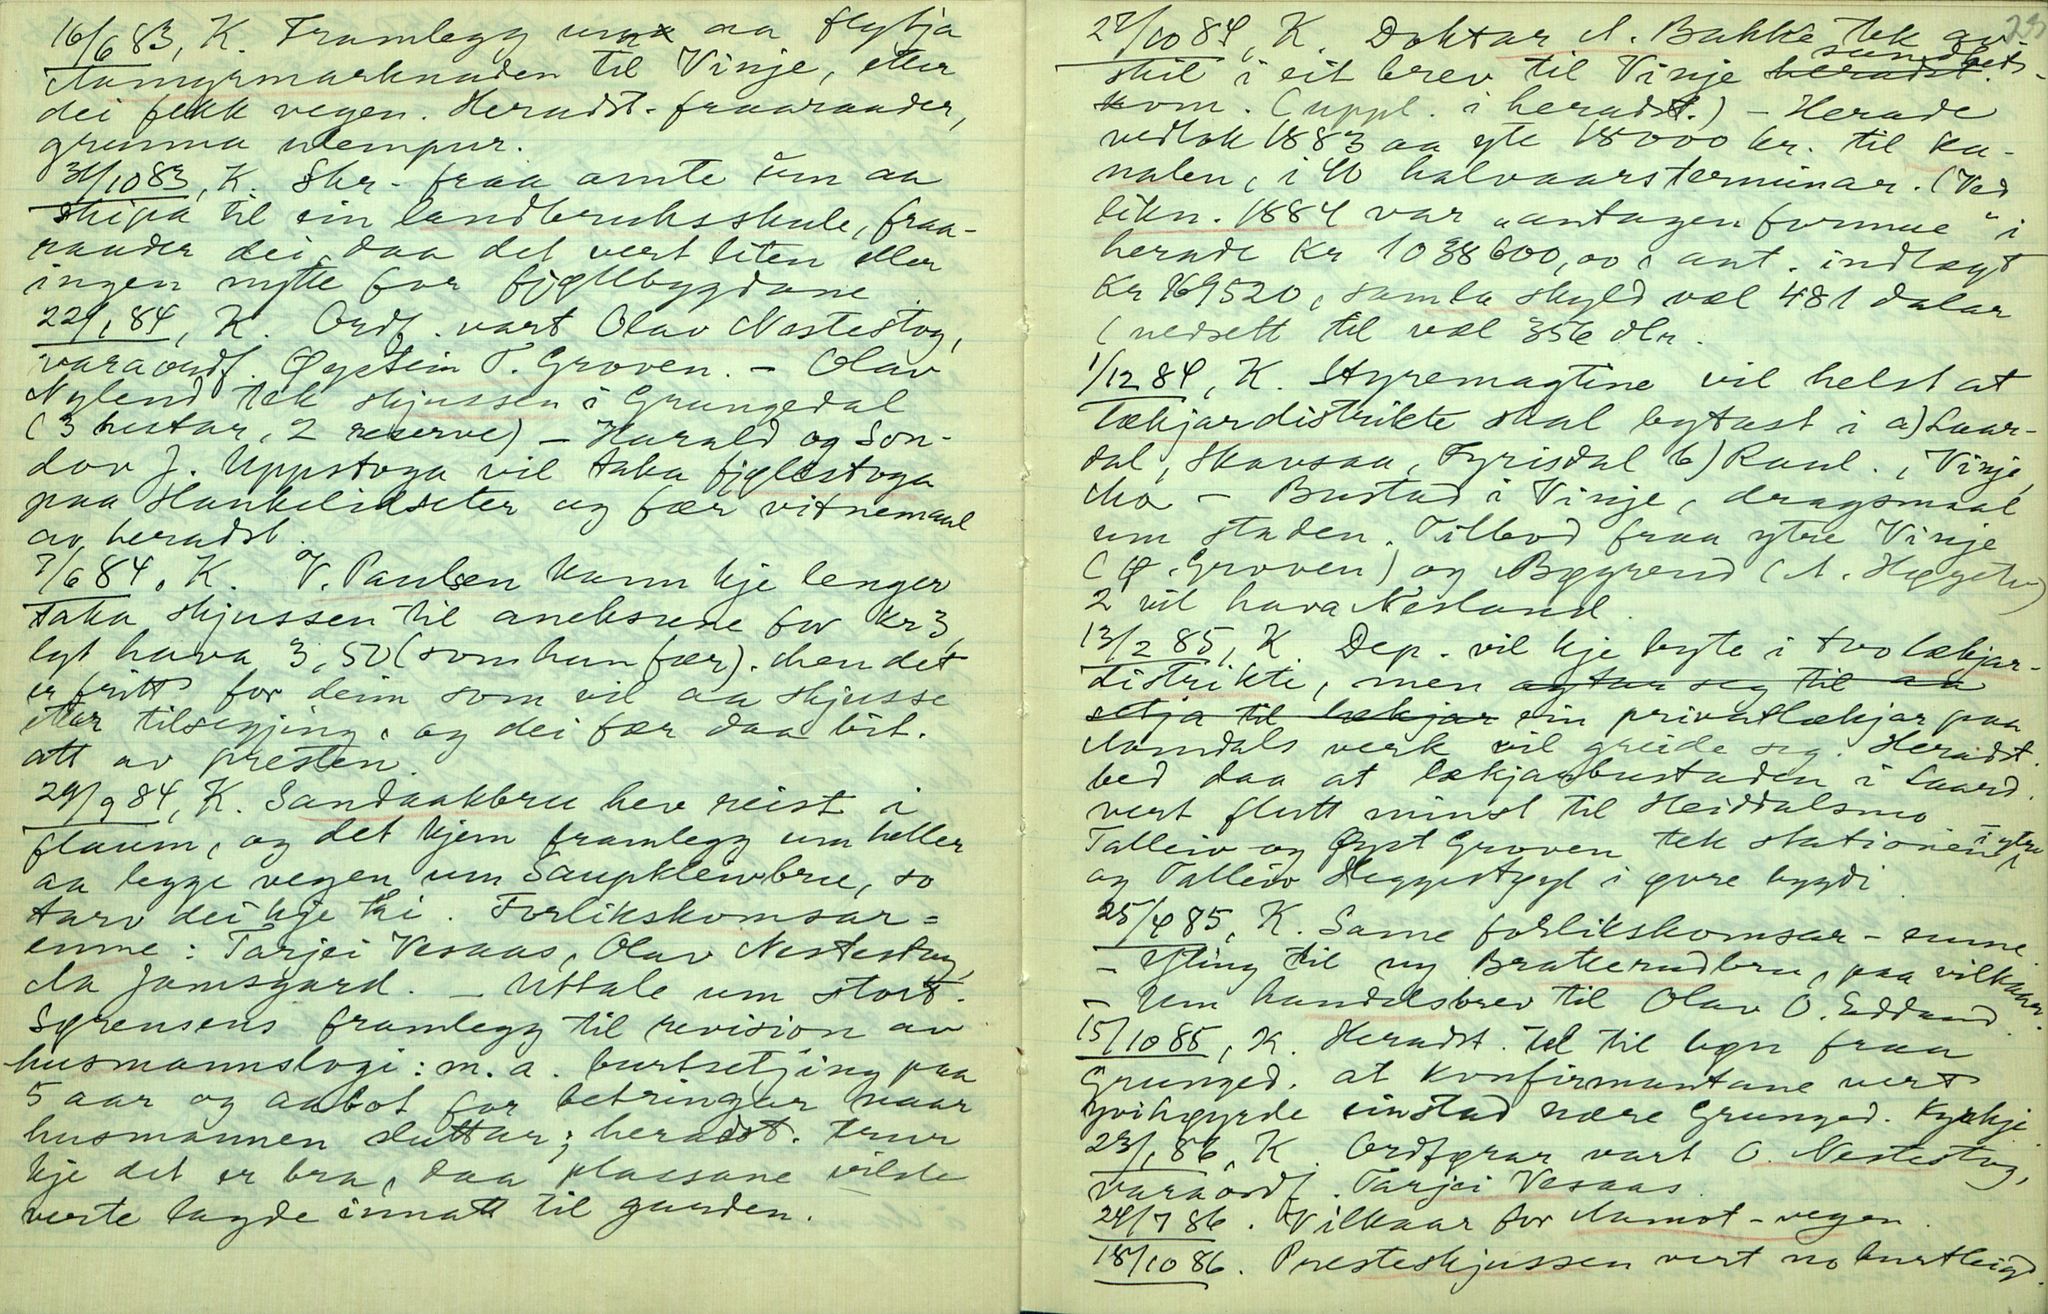 16/6 83, K. Framlegg um aa flytja
Aamyrmarknaden til Vinje, etter
dei fekk vegen. Heradst. fraaraader,
grunna ulempur.
31/10 83, K. Skr. fraa amte um aa
skipa til ein landbruksskule, fraa-
raader dei, daa det vert liten eller
ingen nytte for fjellbygdane.
22/1 84, K. Ordf. vart Olav Nestestog,
varaordf. Øystein T. Groven. – Olav
Nylend tek skjussen i Grungedal
(3 hestar, 2 reserve) – Harald og Son-
dov J. Uppstoga vil taka fjellstoga
paa Haukeliseter og fær vitnemaal
av heradst.
7/6 84, K. V. Paulsen kann kje lenger
taka skjussen til aneksene for kr 3,
lyt hava 3,50 (som han fær). Men det
er fritt for deim som vil aa skjusse
etter tilsegjing, og dei fær daa bit.
att av presten.
29/9 84, K. Sandaakbru hev reist i
flaum, og det kjem framlegg um heller
aa legge vegen um Saupkleivbru, so
tarv dei kje tri. Forlikskomsar=
enne: Tarjei Vesaas, Olav Nestestog,
Aa Jamsgard. – Uttale um stort.
Sørensens framlegg til revisjon av
husmannslogi: m.a. burtsetjing paa
5 aar og aabot for betringar naar
husmannen sluttar; heradst. trur
kje det er bra, daa plassane vilde
verte lagde innatt til garden.
23
27/10 84, K. Doktar A. Bakke tek av-
skil i eit brev til Vinje heradst. sundheds-
kom. (uppl. i heradst.) – Herade
vedtok 1883 aa yte 18000 kr. til ka-
nalen, i 40 halvaarsterminar. (Ved
likn. 1884 var "antagen formue" i
herade kr 1038600,00, ant. indtægt
kr 169520, samla skyld vel 481 dalar
(nedsett til vel 356 dlr.
1/12 84, K. Styremagtine vil helst at
lækjardistrikte skal bytast i a) Laar-
dal, Skavsaa, Fyrisdal b) Raul., Vinje,
Mo – Bustad i Vinje, dragsmaal
um staden. Tilbod fraa ytre Vinje
(Ø. Groven) og Bøgrend (A. Høgetv)
2 vil hava Nesland.
13/2 85, K Dep. vil kje byte i tvo lækjar-
distrikti, men agtar seg til aa
setja til lækjar ein privatlækjar paa
Aamdals verk vil greide seg. Heradst.
bed daa at lækjarbustaden i Laard.
vert flutt minst til Heiddalsmo
Talleiv og Øyst Groven tek stationen i ytre
og Talleiv Heggestøyl i øvre bygdi.
25/4 85, K. Same forlikskomsar-enne.
– Yting til ny Bratterudbru, paa vilkaar.
– Um handelsbrev til Olav O. Edland.
15/10 85, K. Heradst. tek til bøn fraa
Grunged. at konfirmantane vert
yvihøyrde einstad nære Grunged. kyrkje.
23/1 86, K. Ordførar vart O. Nestestog,
varaordf. Tarjei Vesaas.
24/7 86. Vilkaar for Aamot-vegen.
18/10 86. Presteskjussen vert no burtleigd.